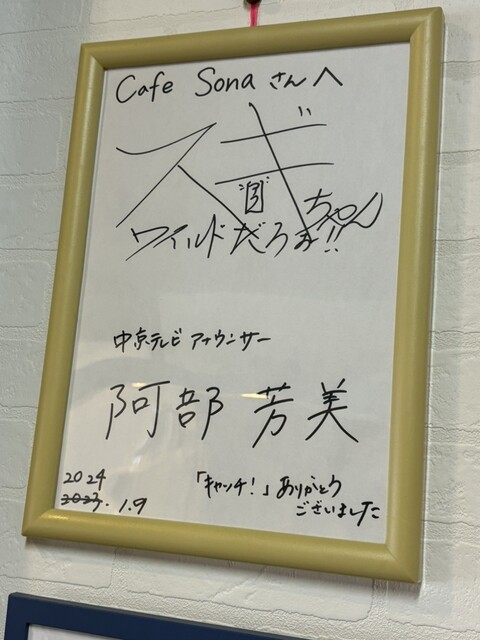 Cafe Sonaさんへ
スギちゃん
ワイルドだろぉ!!
中京テビ アナウンサー
阿部 芳美
2024
2023. 1.9
「キャッチ!」ありがとう
ございました